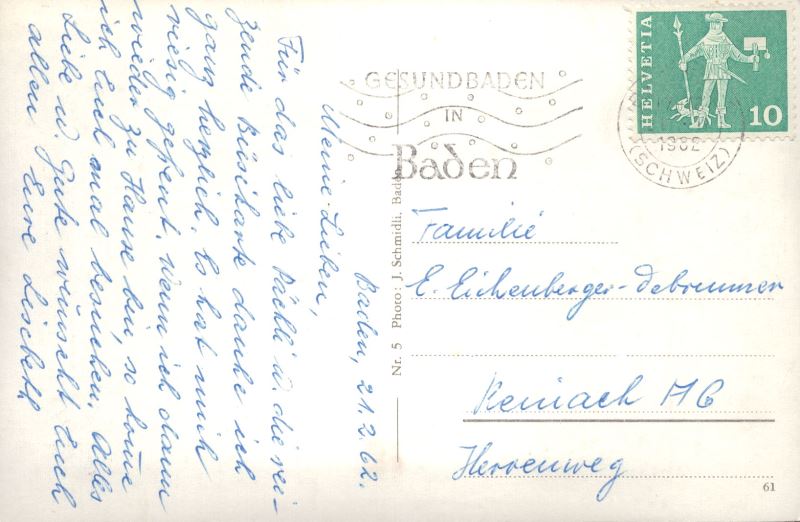 Baden, 21.2.62.
Meine Lieben,
Für das liebe Päckli u. die rei-
zende Büsikarte danke ich
ganz herzlich. Es hat mich
riesig gefreut. Wenn ich dann
wieder zu Hause bin, so komme
ich Euch mal besuchen. Alles
Liebe u. Gute wünscht Euch
allen Eure Lisbeth
Nr. 5 Photo: J. Schmidli, Baden
GESUNDBADEN
IN
Baden
1962
(SCHWEIZ)
HELVETIA
10
Familie
E. Eichenberger-Debrunner
Reinach AG
Herrenweg
61